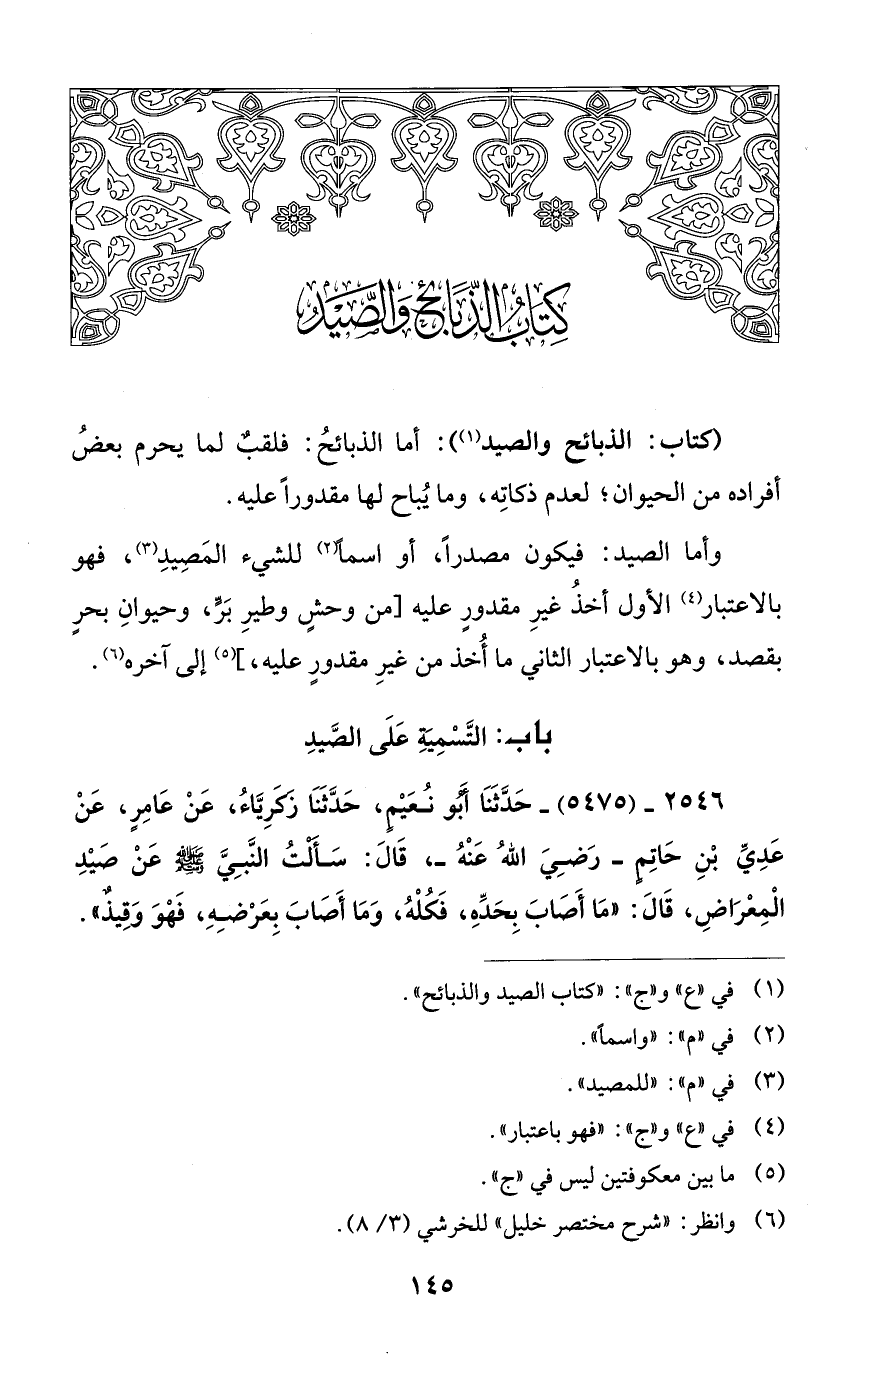 كِتَابُ الذَّبَائِحِ وَالصَّيْدِ
(كتاب: الذبائح والصيد(١)): أما الذبائحُ: فلقبٌ لما يحرم بعضُ
أفراده من الحيوان؛ لعدم ذكاتِه، وما يُباح لها مقدوراً عليه.
وأما الصيد: فيكون مصدراً، أو اسماً(٢) للشيء المَصِيدِ(٣)، فهو
بالاعتبار(٤) الأول أخذُ غيرِ مقدورٍ عليه [من وحشٍ وطيرِ بَرٍّ، وحيوانِ بحرٍ
بقصد، وهو بالاعتبار الثاني ما أُخذ من غيرِ مقدورٍ عليه،](٥) إلى آخره(٦).
باب: التَّسْمِيَةِ عَلَى الصَّيدِ
٢٥٤٦ ـ (٥٤٧٥) ـ حَدَّثَنَا أَبُو نُعَيْمٍ، حَدَّثَنَا زَكَرِيَّاءُ، عَنْ عَامِرٍ، عَنْ
عَدِيِّ بْنِ حَاتِمٍ ـ رَضِيَ اللهُ عَنْهُ ـ، قَالَ: سَأَلْتُ النَّبِيَّ ﷺ عَنْ صَيْدِ
الْمِعْرَاضِ، قَالَ: «مَا أَصَابَ بِحَدِّهِ، فَكُلْهُ، وَمَا أَصَابَ بِعَرْضِهِ، فَهْوَ وَقِيذٌ».
(١) في «ع» و«ج»: «كتاب الصيد والذبائح».
(٢) في «م»: «واسماً».
(٣) في «م»: «للمصيد».
(٤) في «ع» و«ج»: «فهو باعتبار».
(٥) ما بين معكوفتين ليس في «ج».
(٦) وانظر: «شرح مختصر خليل» للخرشي (٣/ ٨).
١٤٥